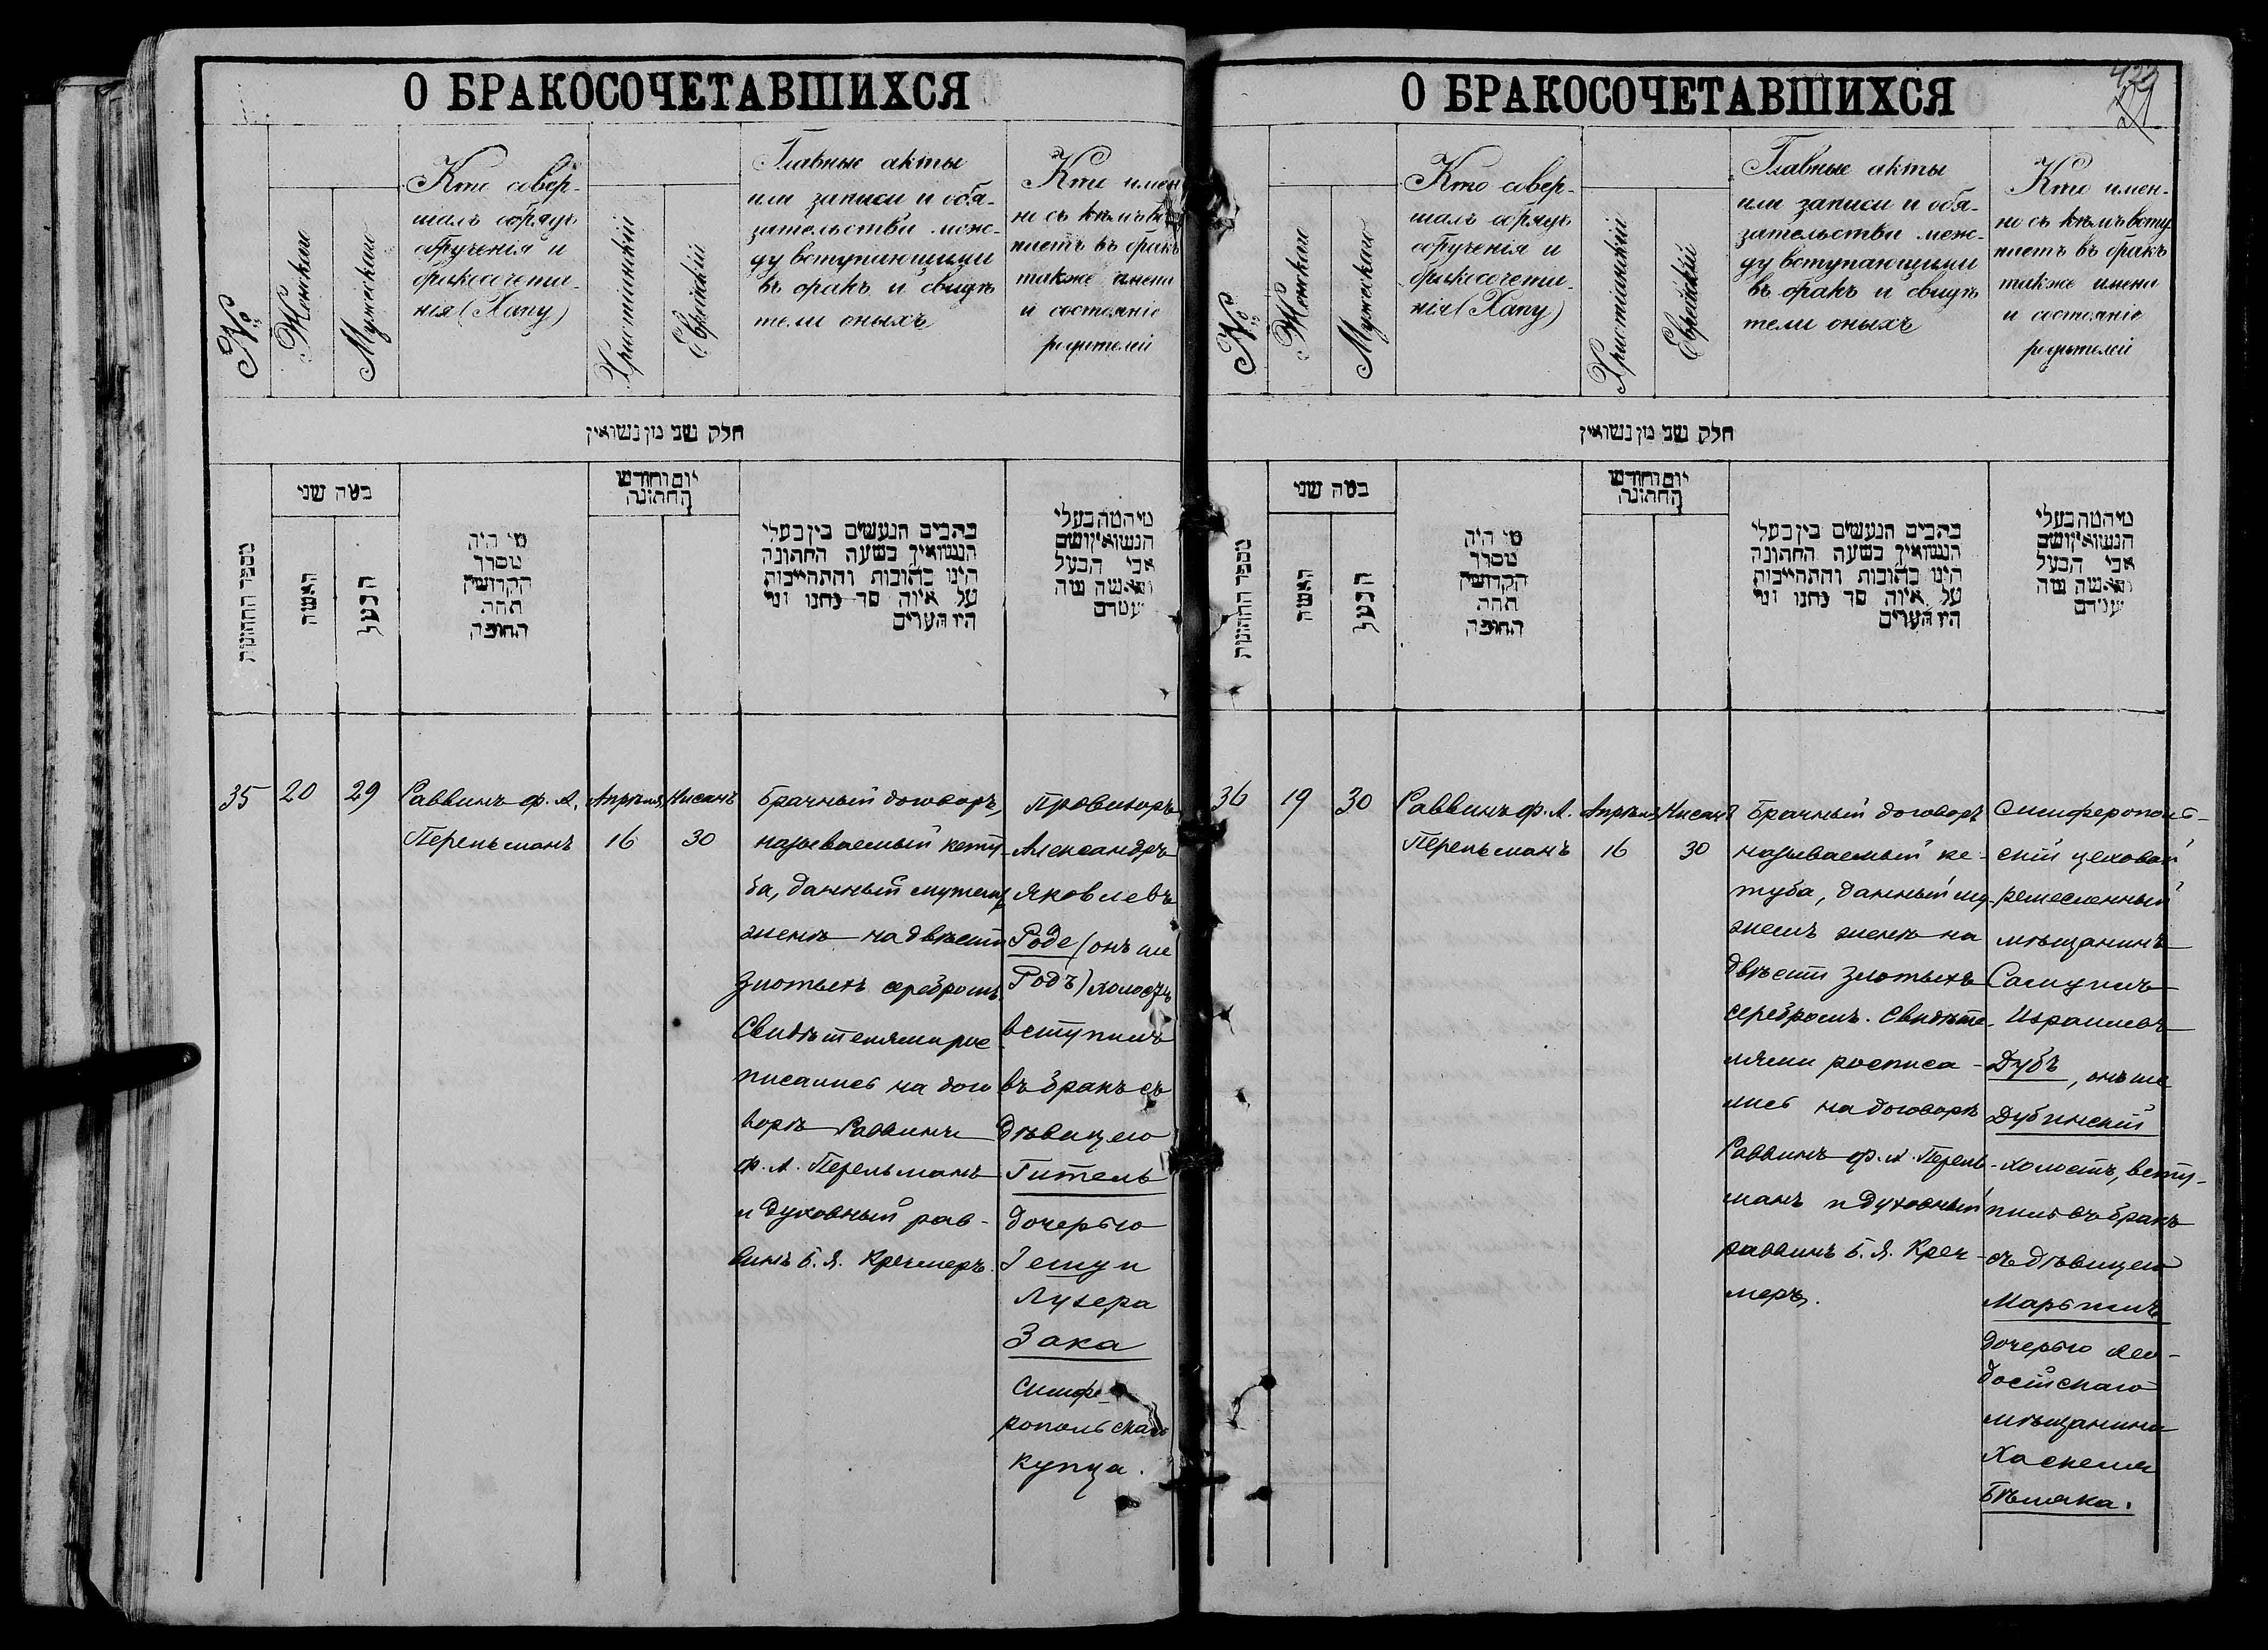 О БРАКОСОЧЕТАВШИХСЯ
№
Женскаго
Мужескаго
Кто совер-
шалъ обрядъ
обрученія и
бракосочета-
нія (Хапу)
Христіанскій
Еврейскій
Главные акты
или записи и обя-
зательства меж-
ду вступающими
въ бракъ и свидѣ
тели оныхъ
Кто имен
но съ кѣмъ всту
паетъ въ бракъ
также имена
и состояніе
родителей
חלק שני מן נשואין
מספר החתונות
כמה שני
האשה
הבעל
מי היה
מסדר
הקדושין
תחת
החופה
יום וחודש
החתונה
כתבים הנעשים בין בעלי
הנשואין בשעה החתונה
היינו כתובות והתחייבות
על איזה סך נתנו ומי
היו העדים
מי המה בעלי
הנשואין ושם
אבי הבעל
והאשה מה
עמדם
35
20
29
Раввинъ ф. А.
Перельманъ
Апрѣля
16
Нисанъ
30
Брачный договоръ,
называемый кету-
ба, данный мужемъ
женѣ на двѣсти
злотыхъ серебромъ.
Свидѣтелями рос-
писались на дого
ворѣ Раввинъ
ф. А. Перельманъ
и духовный рав-
винъ Б. Я. Кречмеръ.
Провизоръ
Александръ
Яковлевъ
Роде (онъ же
Родъ) холостъ
вступилъ
въ бракъ съ
дѣвицею
Гитель
дочерью
Гешуи
Лузера
Зака
Симфе-
ропольскаго
купца.
О БРАКОСОЧЕТАВШИХСЯ
422
№
Женскаго
Мужескаго
Кто совер-
шалъ обрядъ
обрученія и
бракосочета-
нія (Хапу)
Христіанскій
Еврейскій
Главные акты
или записи и обя-
зательства меж-
ду вступающими
въ бракъ и свидѣ
тели оныхъ
Кто имен-
но съ кѣмъ всту
паетъ въ бракъ
также имена
и состояніе
родителей
חלק שני מן נשואין
מספר החתונות
כמה שני
האשה
הבעל
מי היה
מסדר
הקדושין
תחת
החופה
יום וחודש
החתונה
כתבים הנעשים בין בעלי
הנשואין בשעה החתונה
היינו כתובות והתחייבות
על איזה סך נתנו ומי
היו העדים
מי המה בעלי
הנשואין ושם
אבי הבעל
והאשה מה
עמדם
36
19
30
Раввинъ ф. А.
Перельманъ
Апрѣля
16
Нисанъ
30
Брачный договоръ
называемый ке-
туба, данный му-
жемъ женѣ на
двѣсти злотыхъ
серебромъ. Свидѣте-
лями росписа-
лись на договорѣ
Раввинъ ф. А. Перель-
манъ и духовный
раввинъ Б. Я. Креч-
меръ.
Симферополь-
скій цеховой
ремесленный
мѣщанинъ
Самуилъ
Израилевъ
Дубъ, онъ же
Дубинскій
холостъ, всту-
пилъ въ бракъ
съ дѣвицею
Марьямъ
дочерью Ѳео-
досійскаго
мѣщанина
Хаскеля
Бѣляка.